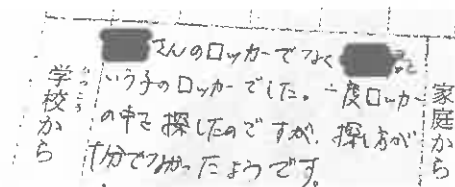 学校から
がっこう
さんのロッカーでなく
いう子のロッカーでした。一度ロッカー
の中を探したのですが、探し方が
十分でなかったようです。
家庭から